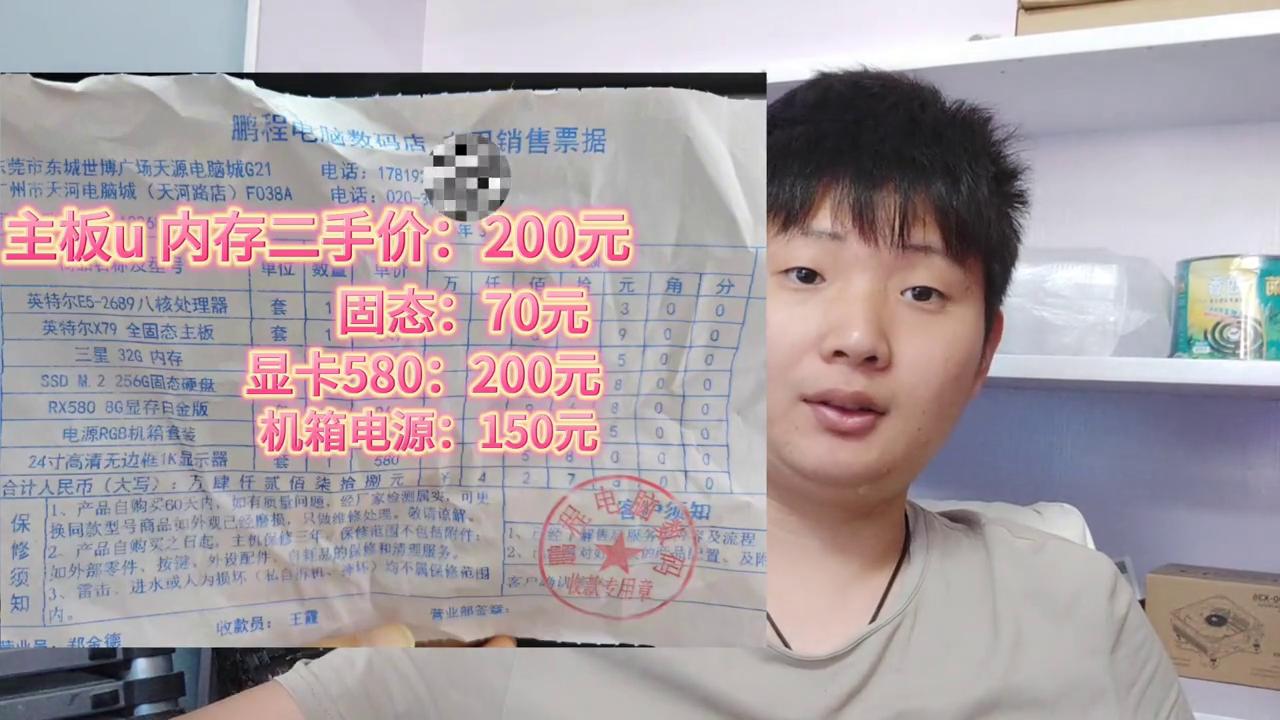 鹏程电脑数码店 销售票据
东莞市东城世博广场天源电脑城G21 电话：17819
广州市天河电脑城（天河路店）F038A 电话：020-3
主板u 内存二手价：200元
单位 数量 单价
万 仟 佰 拾 元 角 分
英特尔E5-2689八核处理器 套 1 3 0 0
固态：70元
英特尔X79 全固态主板 套 1 9 0 0
三星 32G 内存 5 0 0
显卡580：200元
SSD M.2 256G固态硬盘 8 0 0
RX580 8G显存白金版 8 0 0
机箱电源：150元
电源RGB机箱套装 5 0 0
24寸高清无边框1K显示器 套 1 580 5 8 0 0 0
合计人民币（大写）：万肆仟贰佰柒拾捌元 ¥ 4 2 7 8 0 0
保修须知
1、产品自购买60天内，如有质量问题，经厂家检测属实，可更
换同款型号商品如外观已经磨损，只做维修处理。敬请谅解。
2、产品自购买之日起，主机保修三年，保修范围不包括附件：
如外部零件、按键、外设配件、自制品的保修和清理服务。
3、雷击、进水或人为损坏（私自拆机、摔坏）均不属保修范围
内。
客户须知
收款专用章
收款员：王霞
营业部签章：
营业员：郑金德